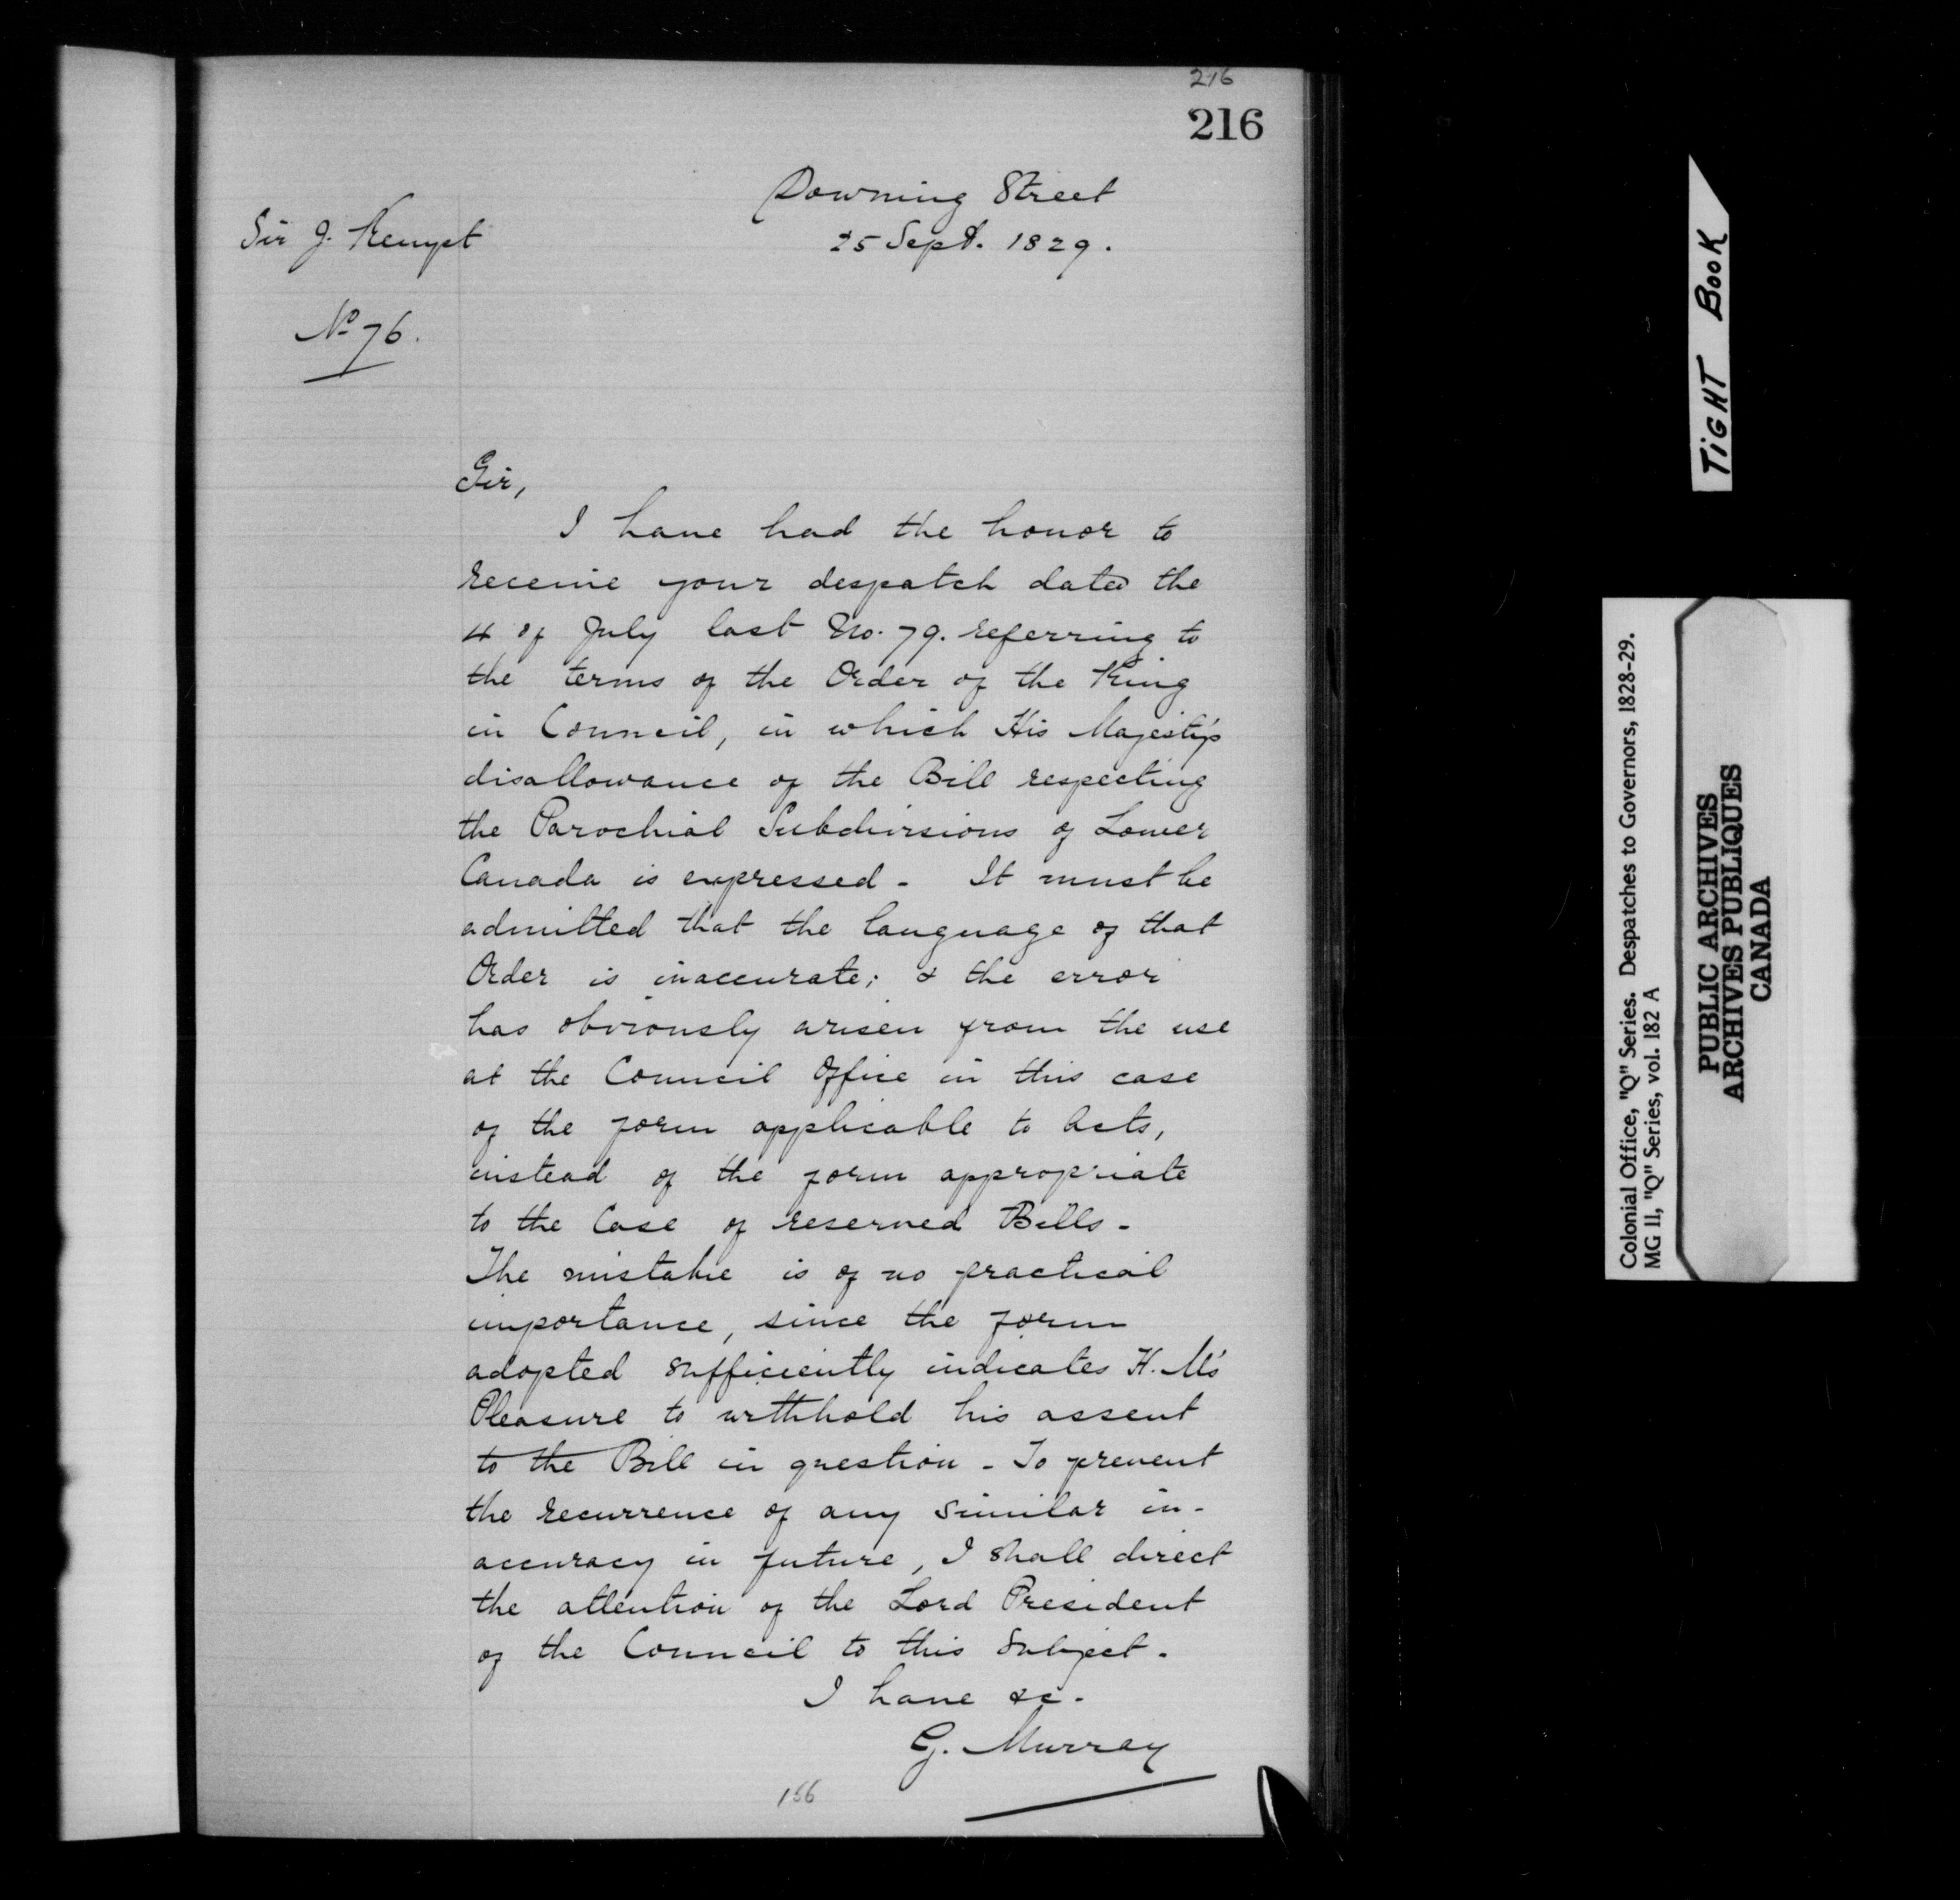 216
216
Downing Street
25 Sept. 1829.
Sir J. Kempt
No 76.
Sir,
I have had the honor to
receive your despatch dated the
4 of July last No. 79. referring to
the terms of the Order of the King
in Council, in which His Majesty's
disallowance of the Bill respecting
the Parochial Subdivisions of Lower
Canada is expressed - It must be
admitted that the language of that
Order is inaccurate; & the error
has obviously arisen from the use
at the Council Office in this case
of the form applicable to Acts,
instead of the form appropriate
to the Case of reserved Bills -
The mistake is of no practical
importance, since the form
adopted sufficiently indicates H. M's
Pleasure to withhold his assent
to the Bill in question - To prevent
the recurrence of any similar in-
accuracy in future, I shall direct
the attention of the Lord President
of the Council to this subject.
I have &c.
G. Murray
156
TIGHT BOOK
Colonial Office, "Q" Series. Despatches to Governors, 1828-29.
MG 11, "Q" Series, vol. 182 A
PUBLIC ARCHIVES
ARCHIVES PUBLIQUES
CANADA